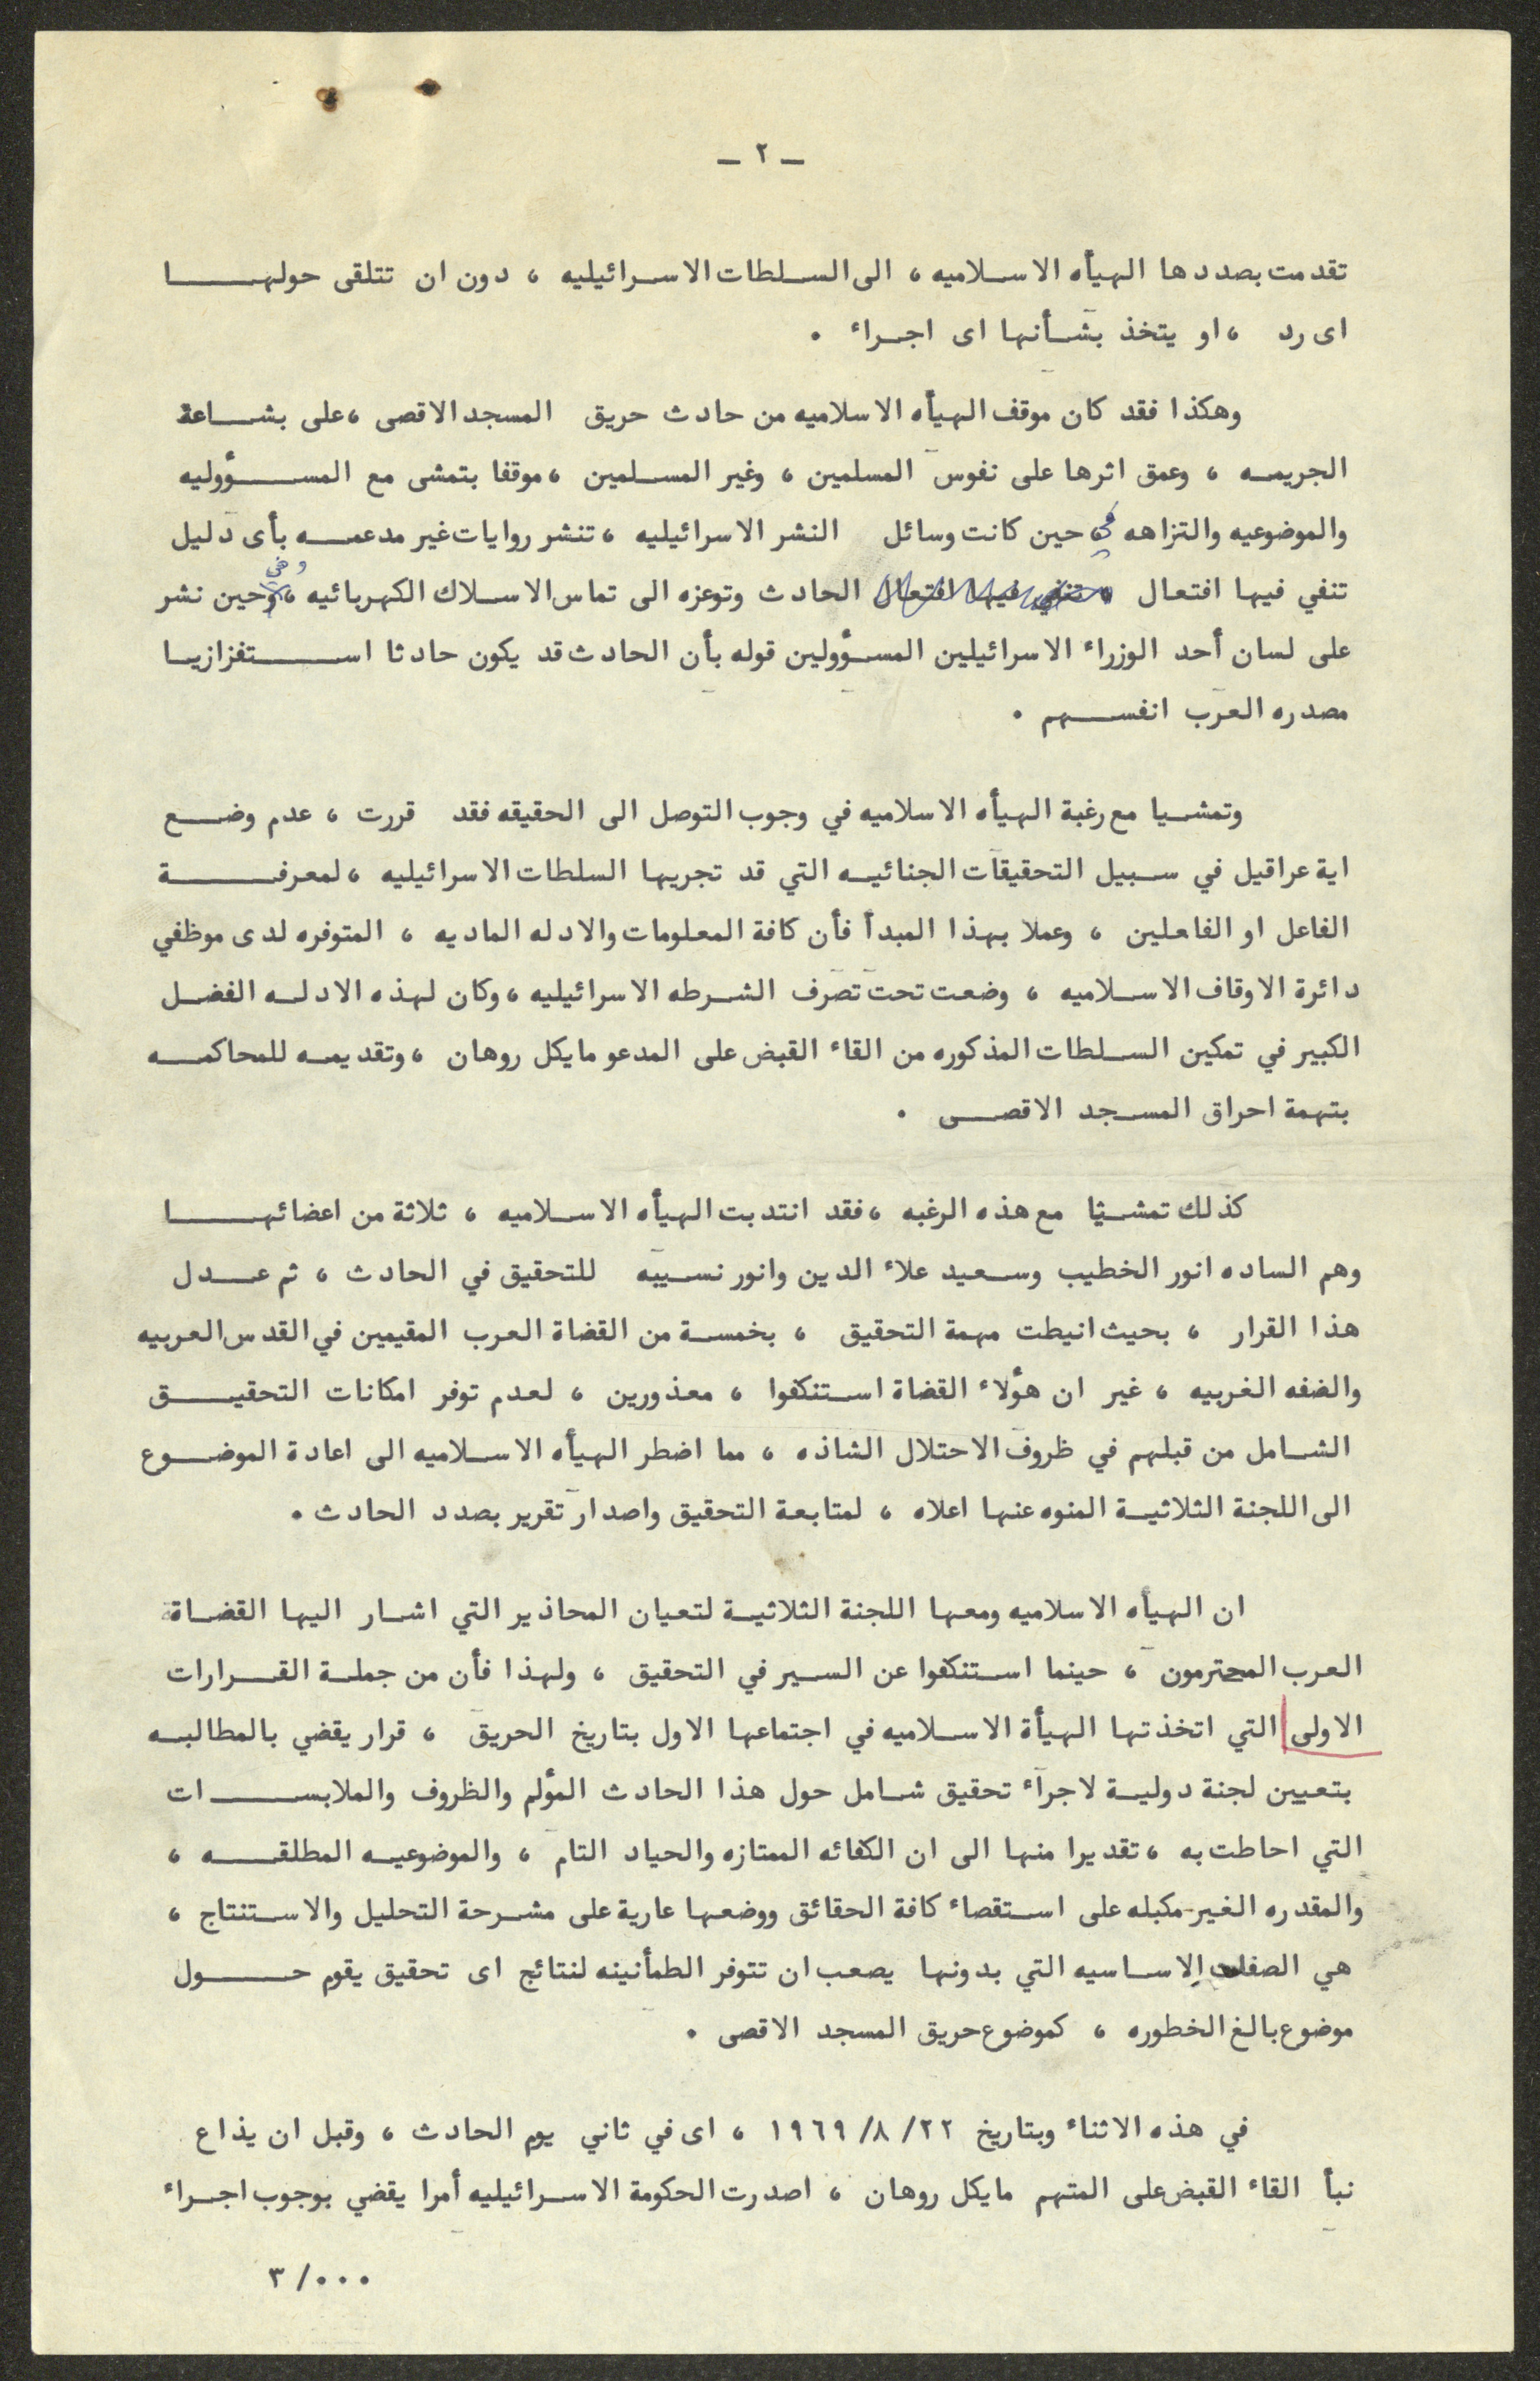 ـ ٢ ـ
تقدمت بصددها الهيأه الاسلاميه ، الى السلطات الاسرائيليه ، دون ان تتلقى حولها
اى رد ، او يتخذ بشأنها اى اجراء .
وهكذا فقد كان موقف الهيأه الاسلاميه من حادث حريق المسجد الاقصى ، على بشاعة
الجريمه ، وعمق اثرها على نفوس المسلمين ، وغير المسلمين ، موقفا بتمشى مع المسؤوليه
والموضوعيه والتزاهه في حين كانت وسائل النشر الاسرائيليه ، تنشر روايات غير مدعمه بأى دليل
تنفي فيها افتعال الحادث وتوعزه الى تماس الاسلاك الكهربائيه ، وفي حين نشر
على لسان أحد الوزراء الاسرائيلين المسؤولين قوله بأن الحادث قد يكون حادثا استفزازيا
مصدره العرب انفسهم .
وتمشيا مع رغبة الهيأه الاسلاميه في وجوب التوصل الى الحقيقه فقد قررت ، عدم وضع
اية عراقيل في سبيل التحقيقات الجنائيه التي قد تجريها السلطات الاسرائيليه ، لمعرفة
الفاعل او الفاعلين ، وعملا بهذا المبدأ فأن كافة المعلومات والادله الماديه ، المتوفره لدى موظفي
دائرة الاوقاف الاسلاميه ، وضعت تحت تصرف الشرطه الاسرائيليه ، وكان لهذه الادله الفضل
الكبير في تمكين السلطات المذكوره من القاء القبض على المدعو مايكل روهان ، وتقديمه للمحاكمه
بتهمة احراق المسجد الاقصى .
كذلك تمشيا مع هذه الرغبه ، فقد انتدبت الهيأه الاسلاميه ، ثلاثة من اعضائها
وهم الساده انور الخطيب وسعيد علاء الدين وانور نسيبه للتحقيق في الحادث ، ثم عدل
هذا القرار ، بحيث انيطت مهمة التحقيق ، بخمسة من القضاة العرب المقيمين في القدس العربيه
والضفه الغربيه ، غير ان هؤلاء القضاة استنكفوا ، معذورين ، لعدم توفر امكانات التحقيق
الشامل من قبلهم في ظروف الاحتلال الشاذه ، مما اضطر الهيأه الاسلاميه الى اعادة الموضوع
الى اللجنة الثلاثية المنوه عنها اعلاه ، لمتابعة التحقيق واصدار تقرير بصدد الحادث .
ان الهيأه الاسلاميه ومعها اللجنة الثلاثية لتعيان المحاذير التي اشار اليها القضاة
العرب المحترمون ، حينما استنكفوا عن السير في التحقيق ، ولهذا فأن من جملة القرارات
الاولى التي اتخذتها الهيأة الاسلاميه في اجتماعها الاول بتاريخ الحريق ، قرار يقضي بالمطالبه
بتعيين لجنة دولية لاجراء تحقيق شامل حول هذا الحادث المؤلم والظروف والملابسات
التي احاطت به ، تقديرا منها الى ان الكفائه الممتازه والحياد التام ، والموضوعيه المطلقه ،
والمقدره الغير مكبله على استقصاء كافة الحقائق ووضعها عارية على مشرحة التحليل والاستنتاج ،
هي الصفات الاساسيه التي بدونها يصعب ان تتوفر الطمأنينه لنتائج اى تحقيق يقوم حول
موضوع بالغ الخطوره ، كموضوع حريق المسجد الاقصى .
في هذه الاثناء وبتاريخ ٢٢/ ٨/ ١٩٦٩ ، اى في ثاني يوم الحادث ، وقبل ان يذاع
نبأ القاء القبض على المتهم مايكل روهان ، اصدرت الحكومة الاسرائيليه أمرا يقضي بوجوب اجراء
٣/٠٠٠